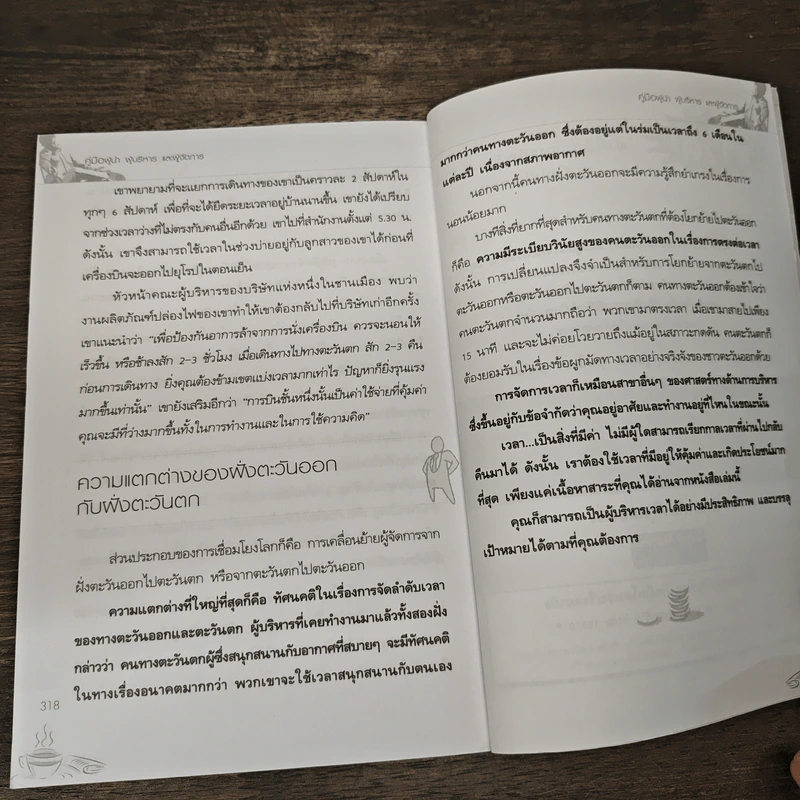 คู่มือผู้นำ ผู้บริหาร และผู้จัดการ
เขาพยายามที่จะแยกการเดินทางของเขาเป็นคราวละ 2 สัปดาห์ใน
ทุกๆ 6 สัปดาห์ เพื่อที่จะได้ยืดระยะเวลาอยู่บ้านนานขึ้น เขายังได้เปรียบ
จากช่วงเวลาว่างที่ไม่ตรงกับคนอื่นอีกด้วย เขาไปที่สำนักงานตั้งแต่ 5.30 น.
ดังนั้น เขาจึงสามารถใช้เวลาในช่วงบ่ายอยู่กับลูกสาวของเขาได้ก่อนที่
เครื่องบินจะออกไปยุโรปในตอนเย็น
หัวหน้าคณะผู้บริหารของบริษัทแห่งหนึ่งในชานเมือง พบว่า
งานผลิตภัณฑ์ปล่องไฟของเขาทำให้เขาต้องกลับไปที่บริษัทเก่าอีกครั้ง
เขาแนะนำว่า “เพื่อป้องกันอาการล้าจากการนั่งเครื่องบิน ควรจะนอนให้
เร็วขึ้น หรือช้าลงสัก 2-3 ชั่วโมง เมื่อเดินทางไปทางตะวันตก สัก 2-3 คืน
ก่อนการเดินทาง ยิ่งคุณต้องข้ามเขตแบ่งเวลามากเท่าไร ปัญหาก็ยิ่งรุนแรง
มากขึ้นเท่านั้น” เขายังเสริมอีกว่า “การบินชั้นหนึ่งนั้นเป็นค่าใช้จ่ายที่คุ้มค่า
คุณจะมีที่ว่างมากขึ้นทั้งในการทำงานและในการใช้ความคิด”
ความแตกต่างของฝั่งตะวันออก
กับฝั่งตะวันตก
ส่วนประกอบของการเชื่อมโยงโลกก็คือ การเคลื่อนย้ายผู้จัดการจาก
ฝั่งตะวันออกไปตะวันตก หรือจากตะวันตกไปตะวันออก
ความแตกต่างที่ใหญ่ที่สุดก็คือ ทัศนคติในเรื่องการจัดลำดับเวลา
ของทางตะวันออกและตะวันตก ผู้บริหารที่เคยทำงานมาแล้วทั้งสองฝั่ง
กล่าวว่า คนทางตะวันตกผู้ซึ่งสนุกสนานกับอากาศที่สบายๆ จะมีทัศนคติ
ในทางเรื่องอนาคตมากกว่า พวกเขาจะใช้เวลาสนุกสนานกับตนเอง
318
คู่มือผู้นำ ผู้บริหาร และผู้จัดการ
มากกว่าคนทางตะวันออก ซึ่งต้องอยู่แต่ในร่มเป็นเวลาถึง 6 เดือนใน
แต่ละปี เนื่องจากสภาพอากาศ
นอกจากนี้คนทางฝั่งตะวันออกจะมีความรู้สึกยำเกรงในเรื่องการ
นอนน้อยมาก
บางทีสิ่งที่ยากที่สุดสำหรับคนทางตะวันตกที่ต้องโยกย้ายไปตะวันออก
ก็คือ ความมีระเบียบวินัยสูงของคนตะวันออกในเรื่องการตรงต่อเวลา
ดังนั้น การเปลี่ยนแปลงจึงจำเป็นสำหรับการโยกย้ายจากตะวันตกไป
ตะวันออกหรือตะวันออกไปตะวันตกก็ตาม คนทางตะวันออกต้องเข้าใจว่า
คนตะวันตกจำนวนมากถือว่า พวกเขามาตรงเวลา เมื่อเขามาสายไปเพียง
15 นาที และจะไม่ค่อยโวยวายถึงแม้อยู่ในสภาวะกดดัน คนตะวันตกก็
ต้องยอมรับในเรื่องข้อผูกมัดทางเวลาอย่างจริงจังของชาวตะวันออกด้วย
การจัดการเวลาก็เหมือนสาขาอื่นๆ ของศาสตร์ทางด้านการบริหาร
ซึ่งขึ้นอยู่กับข้อจำกัดว่าคุณอยู่อาศัยและทำงานอยู่ที่ไหนในขณะนั้น
เวลา...เป็นสิ่งที่มีค่า ไม่มีผู้ใดสามารถเรียกกาลเวลาที่ผ่านไปกลับ
คืนมาได้ ดังนั้น เราต้องใช้เวลาที่มีอยู่ให้คุ้มค่าและเกิดประโยชน์มาก
ที่สุด เพียงแค่เนื้อหาสาระที่คุณได้อ่านจากหนังสือเล่มนี้
คุณก็สามารถเป็นผู้บริหารเวลาได้อย่างมีประสิทธิภาพ และบรรลุ
เป้าหมายได้ตามที่คุณต้องการ